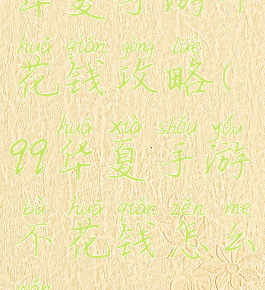 华夏手游不
huā qián gōng lüè
花钱攻略(
huá xià shǒu yóu
99华夏手游
bù huā qián zěn me
不花钱怎么